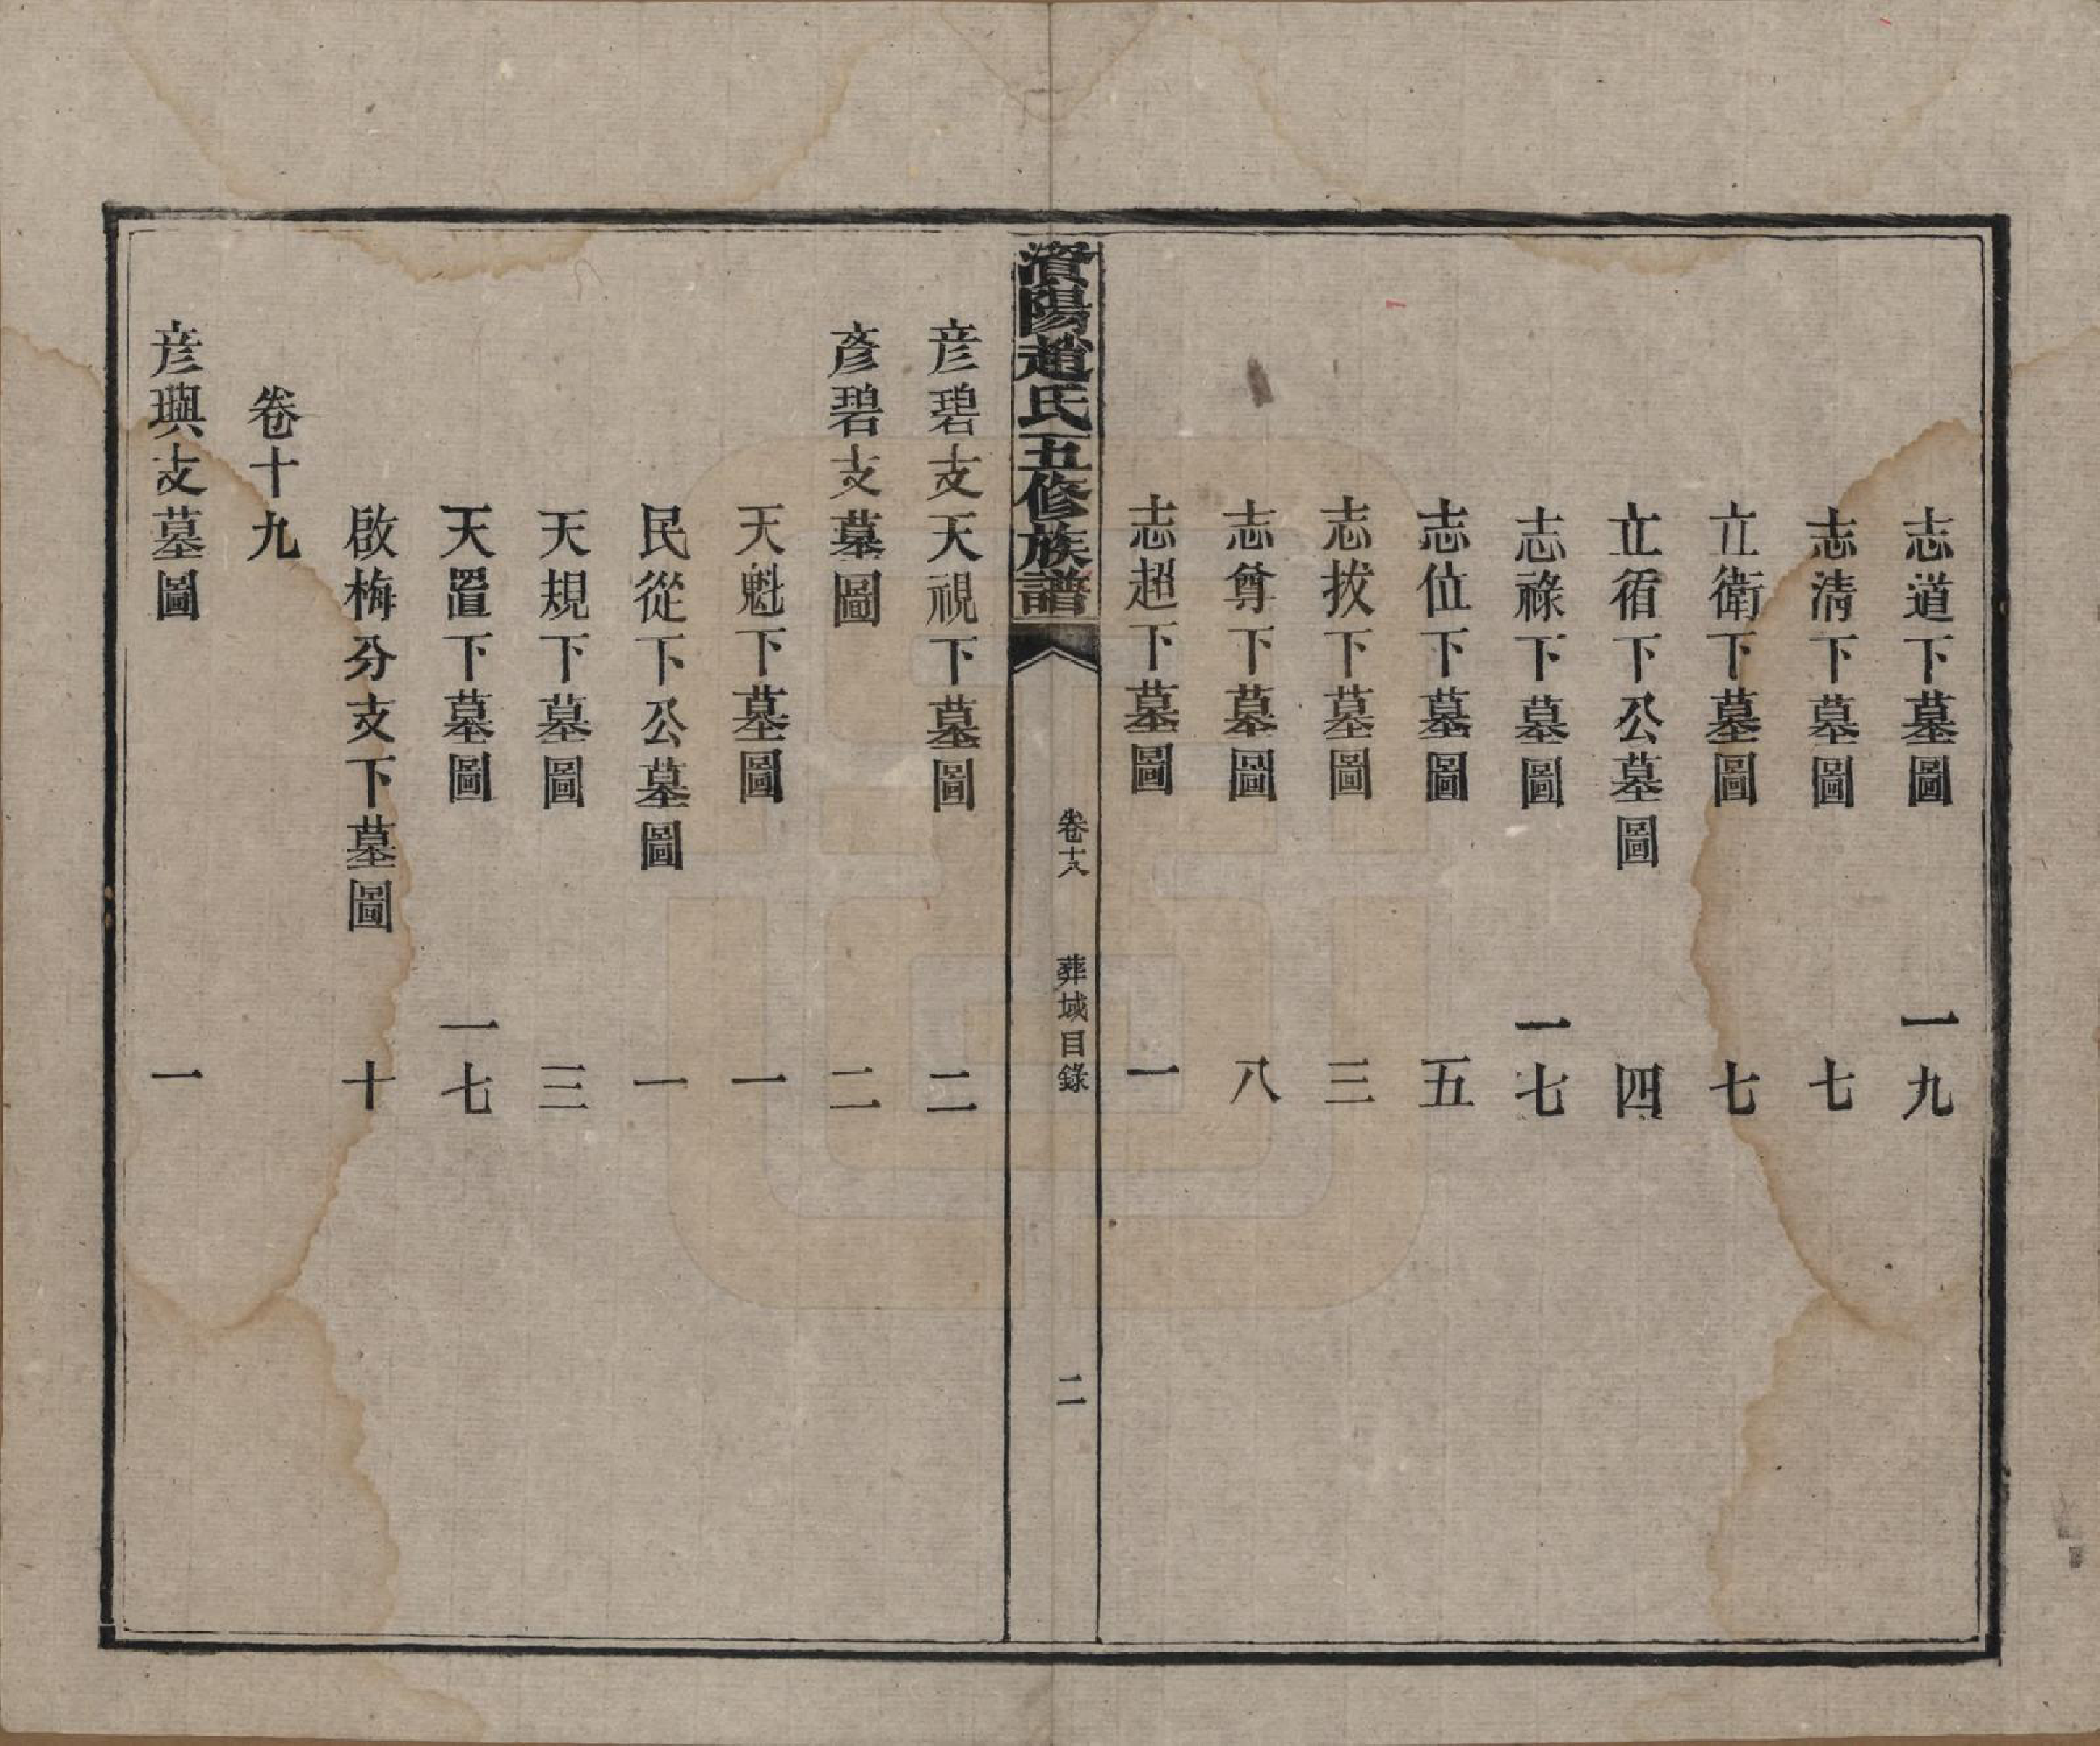 志道下墓圖 一九
志清下墓圖 七
立衛下墓圖 七
立循下公墓圖 四
志祿下墓圖 一七
志位下墓圖 五
志拔下墓圖 三
志尊下墓圖 八
志超下墓圖 一
資陽趙氏五修族譜 卷十八 葬域目錄 二
彦碧支天視下墓圖 二
彥碧支墓圖 二
天魁下墓圖 一
民從下公墓圖 一
天規下墓圖 三
天置下墓圖 一七
啟梅分支下墓圖 十
卷十九
彦璵支墓圖 一